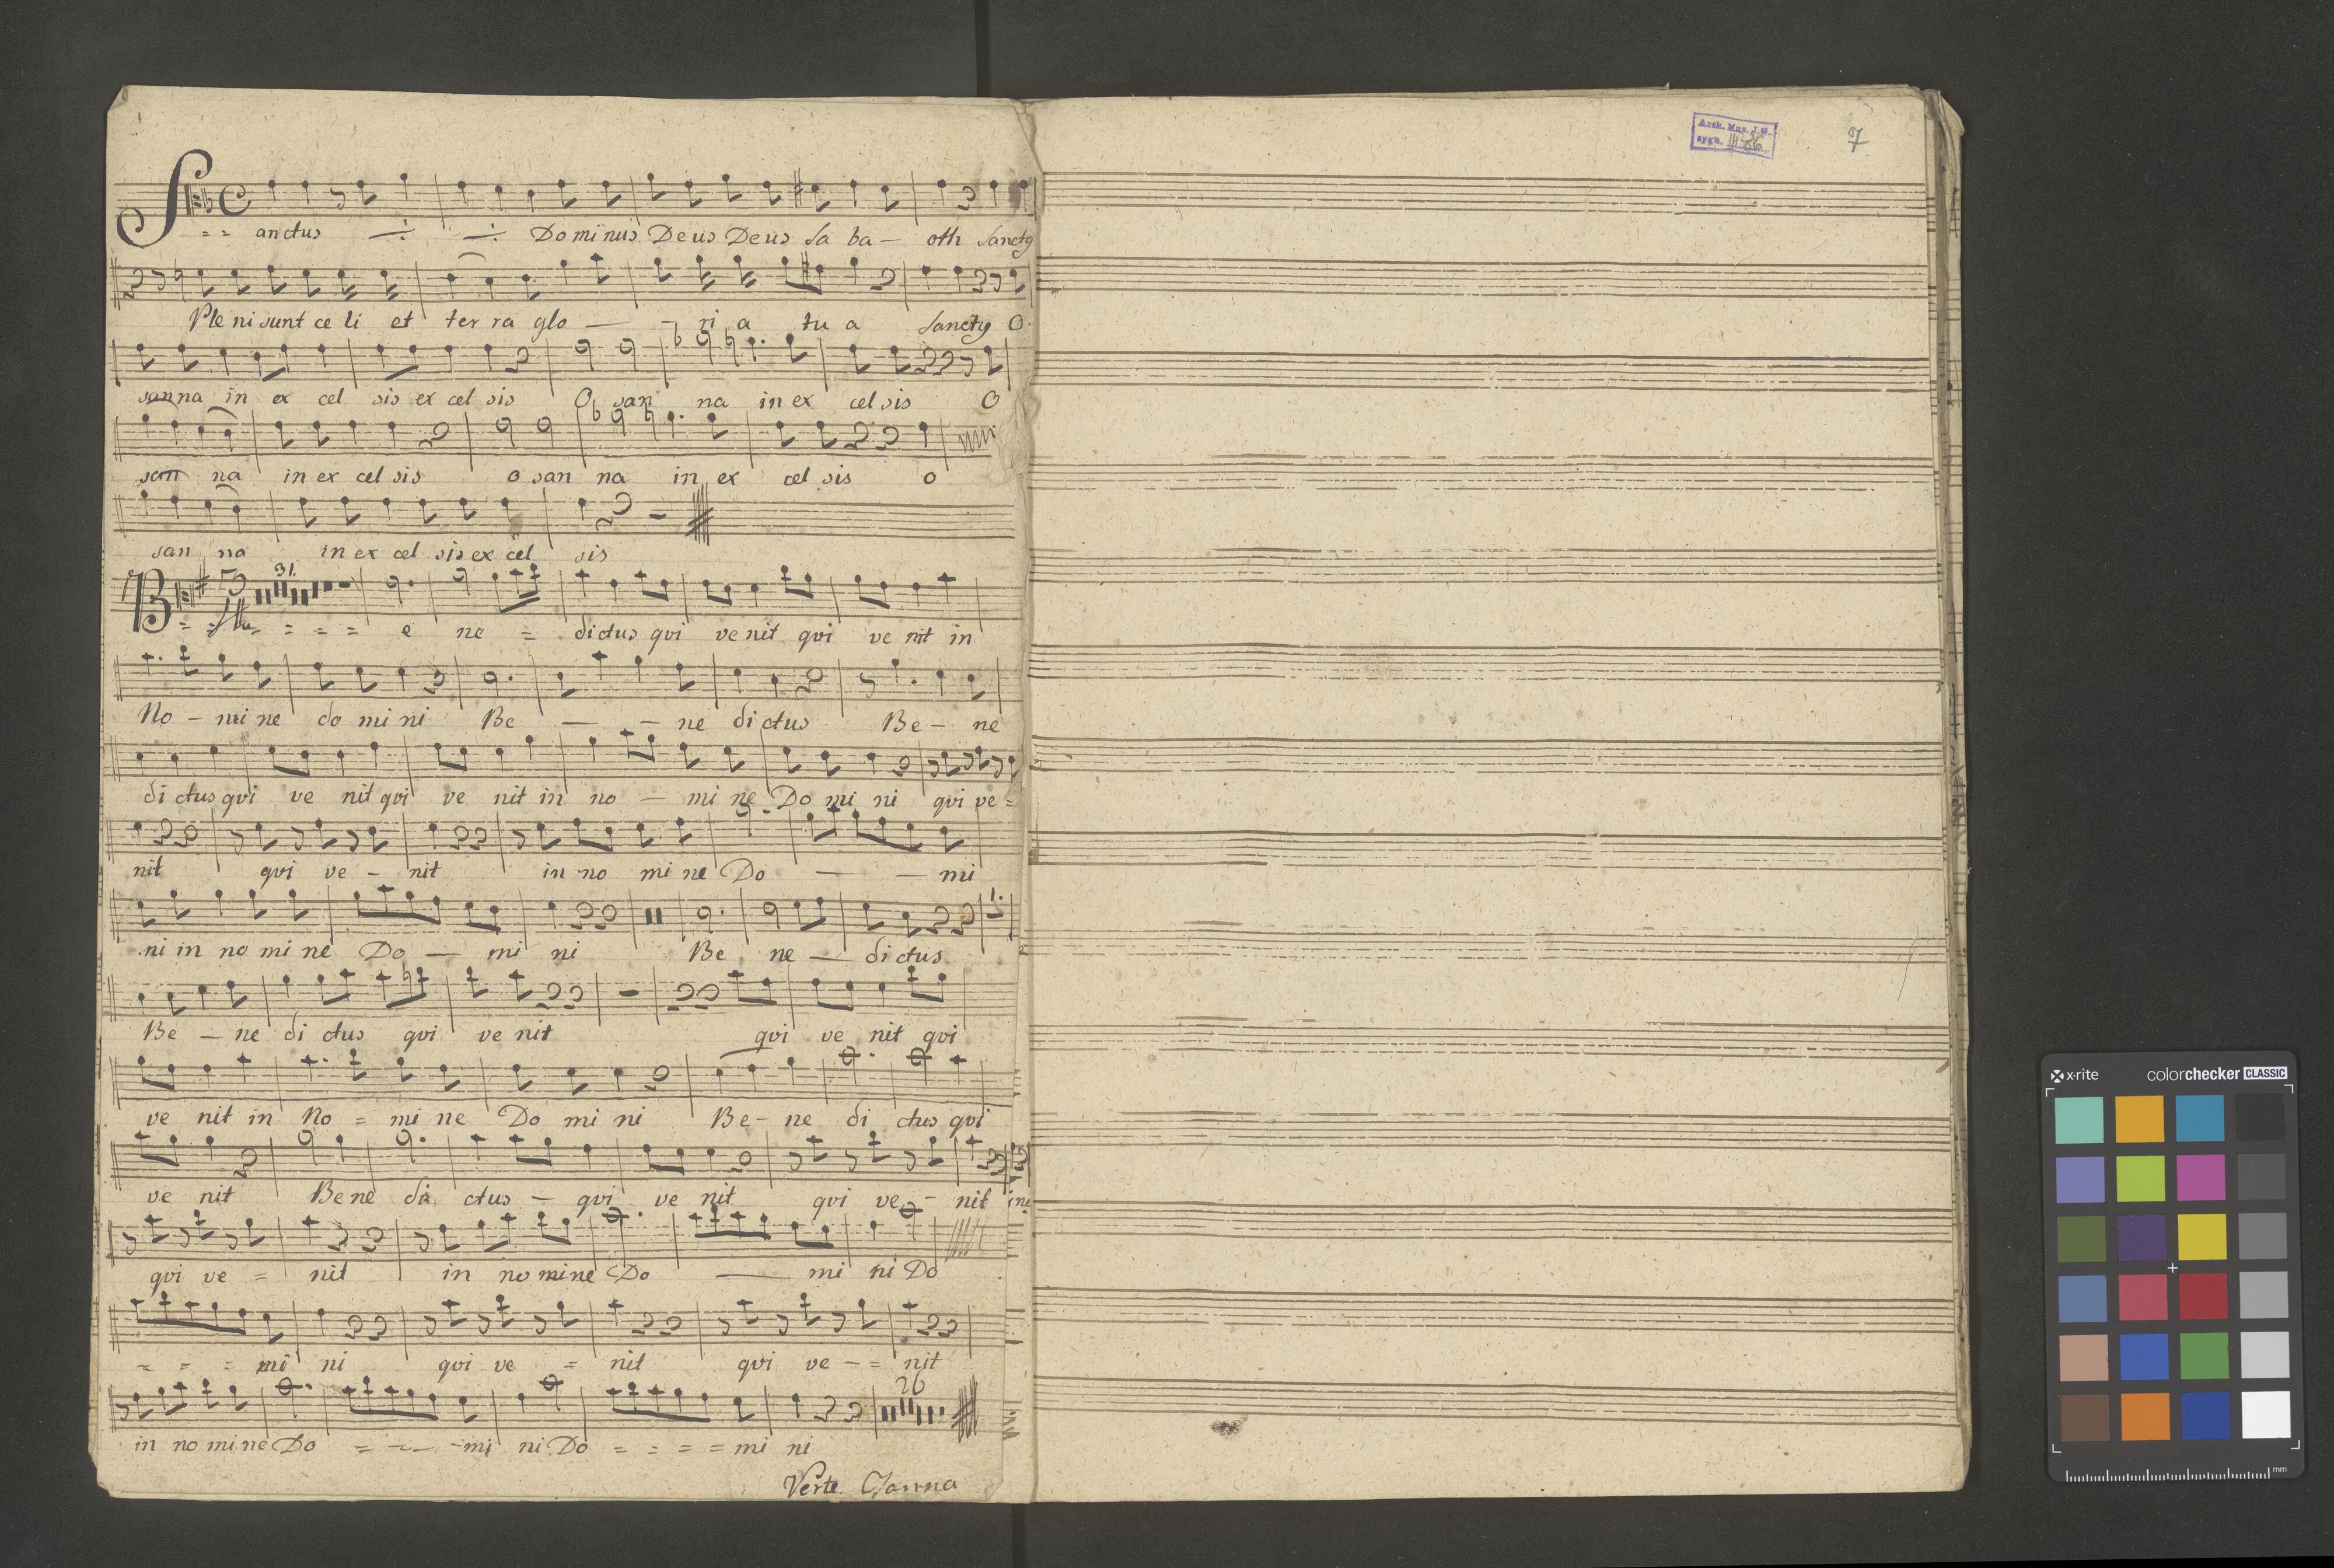 Sanctus Dominus Deus Deus Sa ba – oth Sanctg
Pleni sunt celi et terra glo — – ri a tu a Sanctg O
sanna in ex cel sis ex cel sis O san na in ex cel sis O
san na in ex cel sis o san na in ex cel sis o
san na in ex cel sis ex cel sis
31.
B = = = = = e ne = dictus qvi venit qvi ve nit in
No – mi ne do mi ni Be — – ne dictus Be – ne
di ctus qvi ve nit qvi ve nit in no — mi ne Do mi ni qvi ve =
nit qvi ve – nit in no mi ne Do — — mi
1.
ni in no mi ne Do — mi ni Be ne — dictus
Be — ne di ctus qvi ve nit qvi ve nit qvi
ve nit in No = mi ne Do mi ni Be – ne di ctus qvi
ve nit Be ne di ctus – qvi ve nit qvi ve – nit
qvi ve = nit in no mine Do — mi ni Do
= = = mi ni qvi ve = nit qvi ve – = nit
26
in no mine Do = – – – mi ni Do = = = = mi ni
Verte Osanna
Arch. Mus. J.G.
sygn. III-36
7
x-rite colorchecker CLASSIC
mm